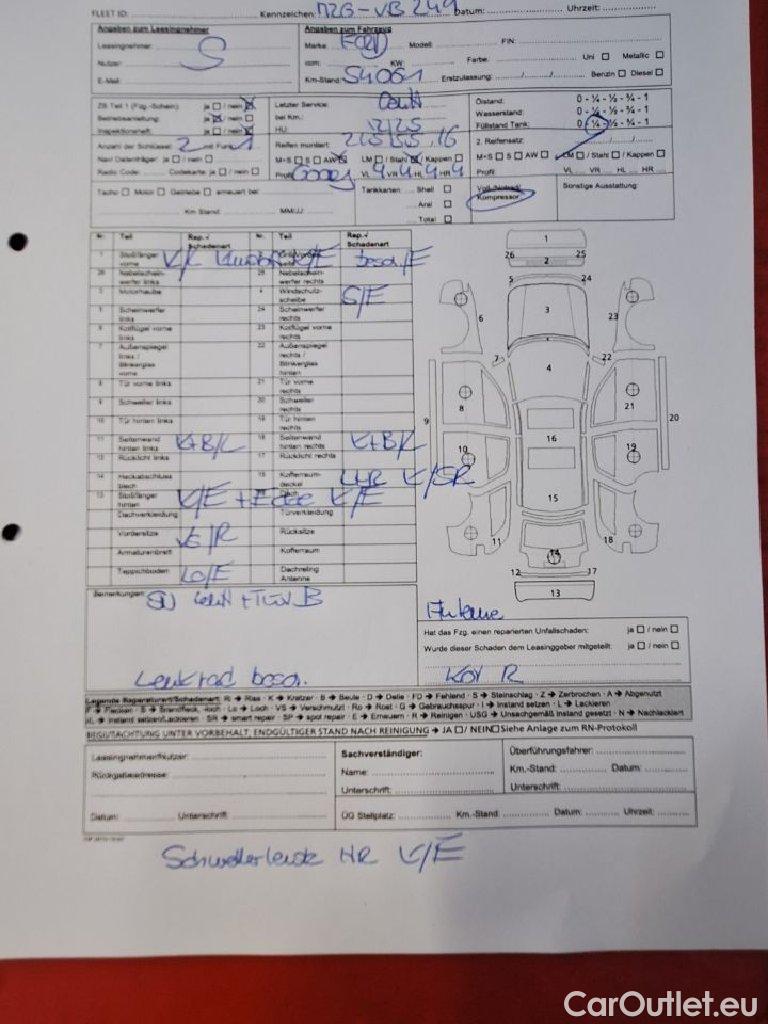 FLEET ID: Kennzeichen: MZG-VB 249 Datum: Uhrzeit:
Angaben zum Leasingnehmer Angaben zum Fahrzeug
Leasingnehmer: S Marke FORD Modell: FIN:
Nutzer: ccm: KW Farbe: Uni Metallic
E-Mail: Km-Stand: 54061 Erstzulassung: Benzin Diesel
ZB Teil 1 (Fzg.-Schein) ja / nein Letzter Service: Ölstand: 0 - ¼ - ½ - ¾ - 1
Betriebsanleitung: ja / nein bei Km.: Wasserstand: 0 - ¼ - ½ - ¾ - 1
Inspektionsheft: ja / nein HU 12/25 Füllstand Tank: 0 - ¼ - ½ - ¾ - 1
Anzahl der Schlüssel: 2 Reifen montiert: 215/55, 16 2. Reifensatz:
Navi Datenträger: ja / nein M+S S AW LM / Stahl / Kappen M+S S AW LM / Stahl / Kappen
Radio Code: Codekarte: ja / nein Profil VL 4 VR 4 HL 4 HR 4 Profil VL VR HL HR
Tacho Motor Getriebe erneuert bei: Tankkarten: Shell Kompressor Sonstige Ausstattung:
Km Stand: MM/JJ: Aral
Total
Nr. Teil Rep.-/ Schadenart Nr. Teil Rep.-/ Schadenart
1 Stoßfänger vorne
Nebelschein-werfer links Nebelschein-werfer rechts
Motorhaube Windschutz-scheibe S/E
Scheinwerfer links 24 Scheinwerfer rechts
Kotflügel vorne links 23 Kotflügel vorne rechts
7 Außenspiegel links / Blinkerglas vorne 22 Außenspiegel rechts / Blinkerglas hinten
8 Tür vorne links 21 Tür vorne rechts
9 Schweller links 20 Schweller rechts
10 Tür hinten links 19 Tür hinten rechts
11 Seitenwand hinten links K+B/L 18 Seitenwand hinten rechts K+B/L
Rücklicht links 17 Rücklicht rechts
14 Heckabschluss blech Kofferraum-deckel K/SR
13 Stoßfänger hinten K/E + Ecke K/E
Dachverkleidung Türverkleidung
Vordersitze VS/R Rücksitze
Armaturenbrett Kofferraum
Teppichboden LO/E Dachreling Antenne
1
2
3
4
5
6
7
8
9
10
11
12
13
14
15
16
17
18
19
20
21
22
23
24
25
26
Bemerkungen: Antenne
Hat das Fzg. einen reparierten Unfallschaden: ja / nein
Wurde dieser Schaden dem Leasinggeber mitgeteilt: ja / nein
Lenkrad besch. R
Legende Reparaturart/Schadenart: R → Riss · K → Kratzer · B → Beule · D → Delle · FD → Fehlend · S → Steinschlag · Z → Zerbrochen · A → Abgenutzt
F → Flecken · B → Brandfleck, -loch · Lo → Loch · VS → Verschmutzt · Ro → Rost · G → Gebrauchsspur · I → Instand setzen · L → Lackieren
IL → Instand setzen/Lackieren · SR → smart repair · SP → spot repair · E → Erneuern · R → Reinigen · USG → Unsachgemäß instand gesetzt · N → Nachlackiert
BEGUTACHTUNG UNTER VORBEHALT, ENDGÜLTIGER STAND NACH REINIGUNG → JA / NEIN Siehe Anlage zum RN-Protokoll
Leasingnehmer/Nutzer: Sachverständiger: Überführungsfahrer:
Rückgabeadresse: Name: Km.-Stand: Datum:
Unterschrift: Unterschrift:
Datum: Unterschrift: OG Stellplatz: Km.-Stand: Datum: Uhrzeit:
Schwellerleiste HR K/E
CarOutlet.eu